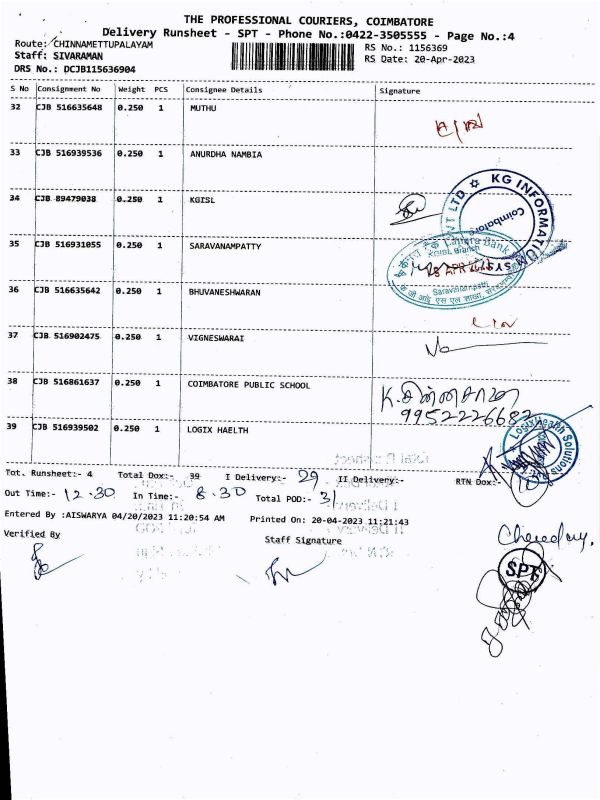 THE PROFESSIONAL COURIERS, COIMBATORE
Delivery Runsheet - SPT - Phone No.:0422-3505555 - Page No.:4
Route: CHINNAMETTUPALAYAM
RS No.: 1156369
Staff: SIVARAMAN
RS Date: 20-Apr-2023
DRS No.: DCJB115636904
S No Consignment No Weight PCS Consignee Details Signature
32 CJB 516635648 0.250 1 MUTHU
33 CJB 516939536 0.250 1 ANURDHA NAMBIA
34 CJB 89479038 0.250 1 KGISL
KG INFORMATION SYS PVT LTD
Coimbatore
35 CJB 516931055 0.250 1 SARAVANAMPATTY
Canara Bank
KGISL Branch
APR
Saravanampatti
36 CJB 516635642 0.250 1 BHUVANESHWARAN
37 CJB 516902475 0.250 1 VIGNESWARAI
38 CJB 516861637 0.250 1 COIMBATORE PUBLIC SCHOOL
9952226682
39 CJB 516939502 0.250 1 LOGIX HAELTH
LogixHealth Solutions
Tot. Runsheet:- 4 Total Dox:- 39 I Delivery:- 29 II Delivery:- RTN Dox:-
Out Time:- 12.30 In Time:- 8.30 Total POD:- 31
Entered By :AISWARYA 04/20/2023 11:20:54 AM Printed On: 20-04-2023 11:21:43
Verified By
Staff Signature
SPT